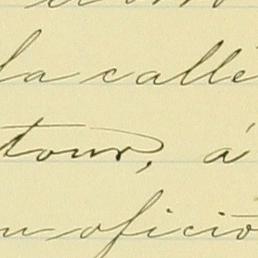 la calle
tour, á
u oficio